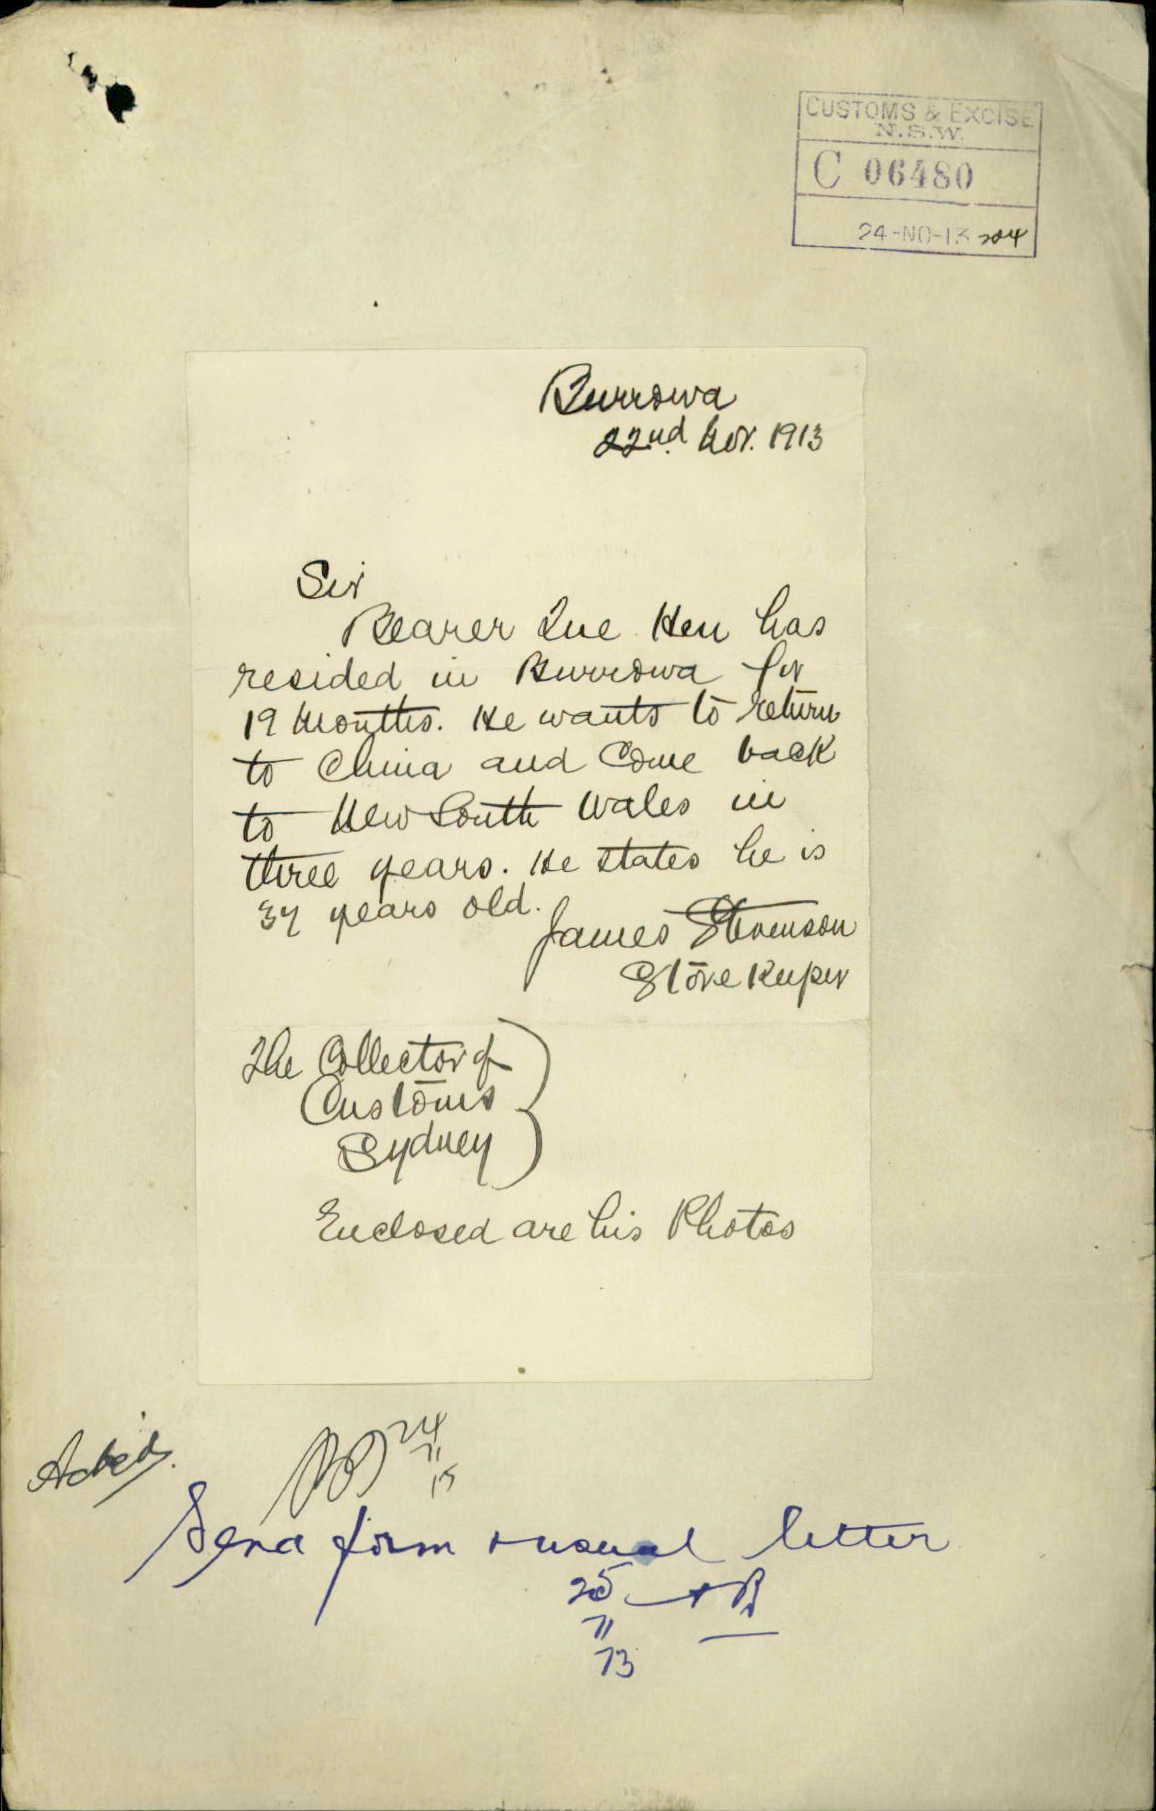 CUSTOMS & EXCISE
N.S.W.
C 06480
24-NO-13 204
Burrowa
22nd Nov. 1913
Sir
Bearer Que Hen has
resided in Burrowa for
19 Months. He wants to return
to China and Come back
to New South Wales in
three years. He states he is
37 years old.
James Stevenson
Store Keeper
The Collector of
Customs
Sydney
Enclosed are his Photos
24
11
13
Send form & usual letter
25
11
13